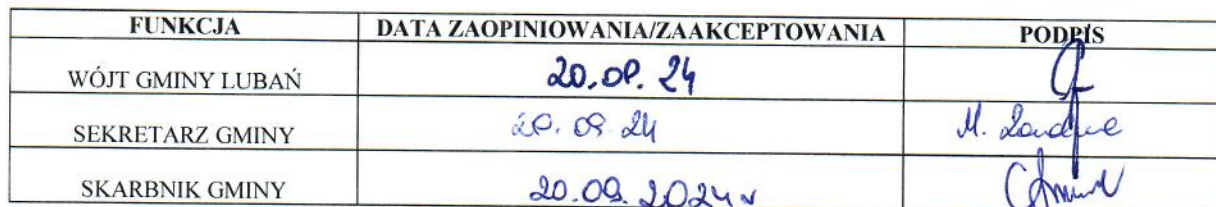 FUNKCJA DATA ZAOPINIOWANIA/ZAAKCEPTOWANIA PODPIS
WÓJT GMINY LUBAŃ 20.09.24
SEKRETARZ GMINY 20.09.24 M.
SKARBNIK GMINY 20.09.2024r